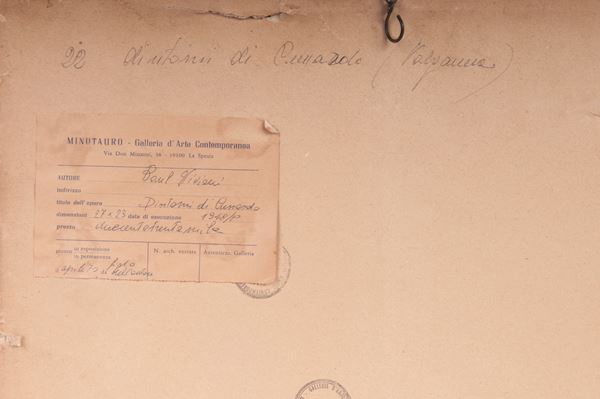 22 dintorni di Cunardo (Valganna)
MINOTAURO - Galleria d'Arte Contemporanea
Via Don Minzoni, 58 - 19100 La Spezia
AUTORE Raul Viviani
indirizzo
titolo dell'opera Dintorni di Cunardo
dimensioni 27 x 23 data di esecuzione
prezzo duecentotrentamila
presso in esposizione
in permanenza
N. arch. entrata
Autenticaz. Galleria
aprile 70
GALLERIE D'